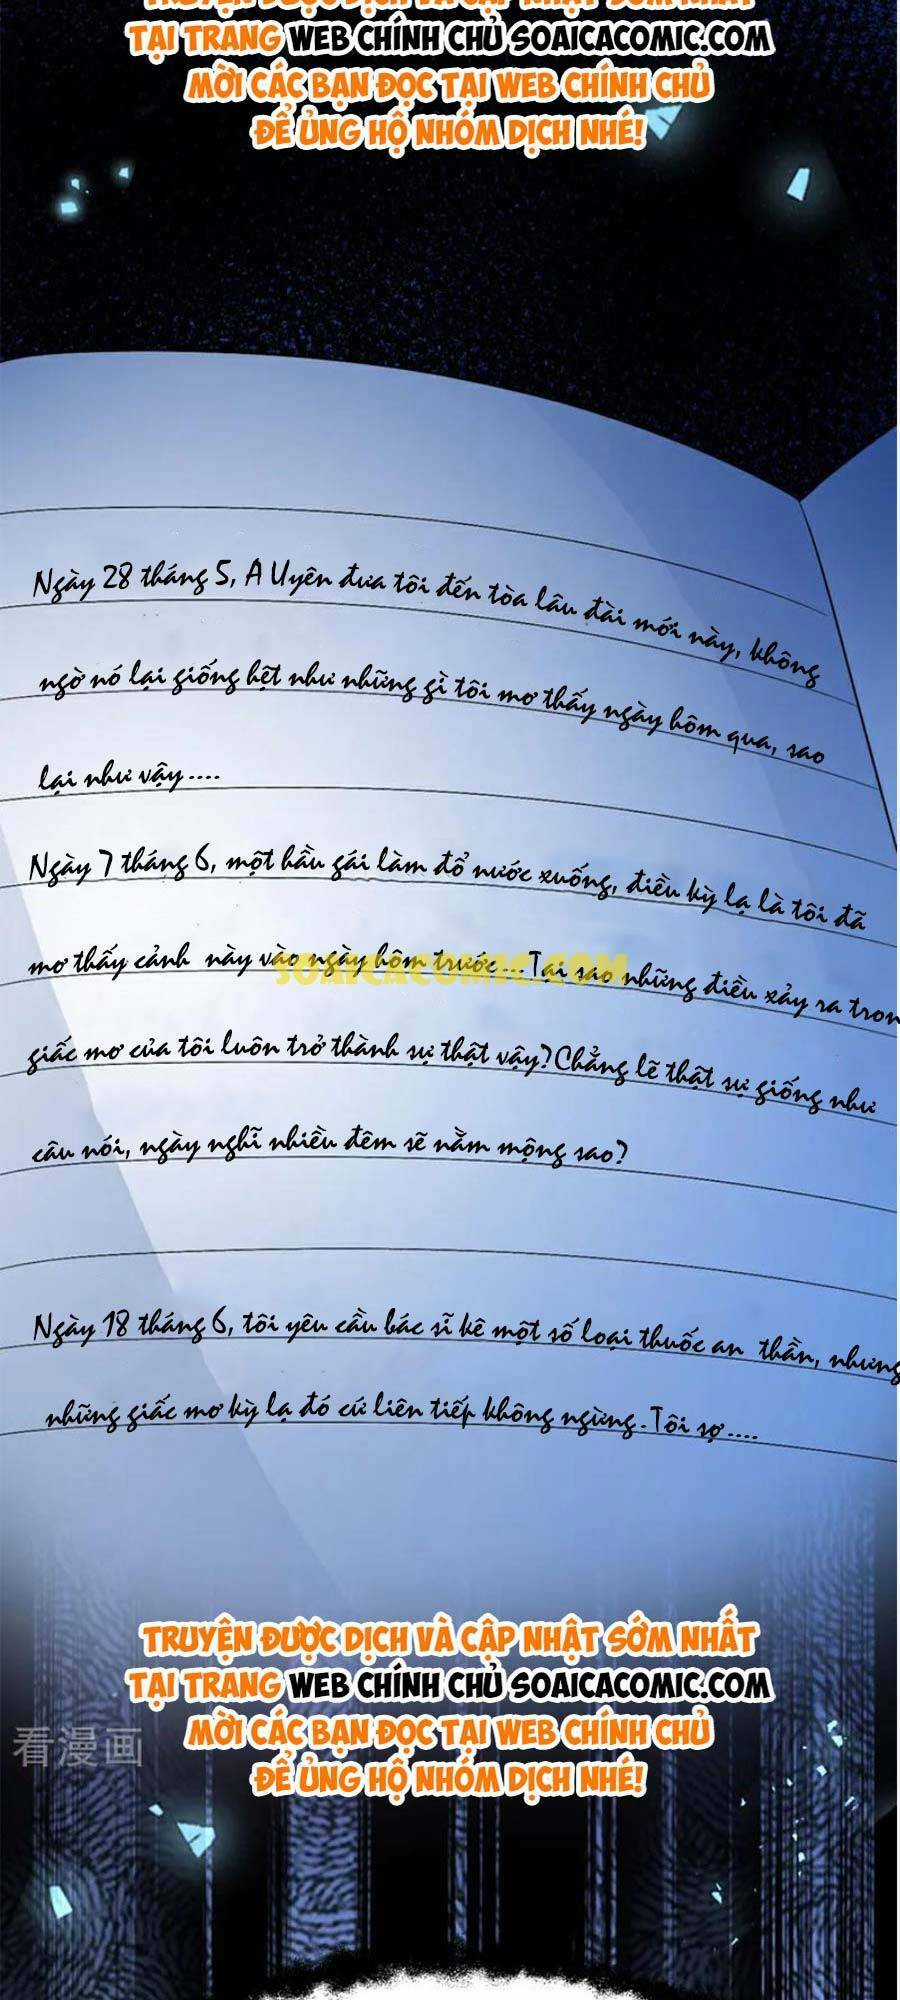 TRUYỆN ĐƯỢC DỊCH VÀ CẬP NHẬT SỚM NHẤT
TẠI TRANG WEB CHÍNH CHỦ SOAICACOMIC.COM
MỜI CÁC BẠN ĐỌC TẠI WEB CHÍNH CHỦ
ĐỂ ỦNG HỘ NHÓM DỊCH NHÉ!
Ngày 28 tháng 5, A Uyên đưa tôi đến tòa lâu đài mới này, không
ngờ nó lại giống hệt như những gì tôi mơ thấy ngày hôm qua, sao
lại như vậy....
Ngày 7 tháng 6, một hầu gái làm đổ nước xuống, điều kỳ lạ là tôi đã
mơ thấy cảnh này vào ngày hôm trước...Tại sao những điều xảy ra tron
SOAICACOMIC.COM
giấc mơ của tôi luôn trở thành sự thật vậy? Chẳng lẽ thật sự giống như
câu nói, ngày nghĩ nhiều đêm sẽ nằm mộng sao?
Ngày 18 tháng 6, tôi yêu cầu bác sĩ kê một số loại thuốc an thần, nhưng
những giấc mơ kỳ lạ đó cứ liên tiếp không ngừng. Tôi sợ....
TRUYỆN ĐƯỢC DỊCH VÀ CẬP NHẬT SỚM NHẤT
TẠI TRANG WEB CHÍNH CHỦ SOAICACOMIC.COM
MỜI CÁC BẠN ĐỌC TẠI WEB CHÍNH CHỦ
看漫画
ĐỂ ỦNG HỘ NHÓM DỊCH NHÉ!